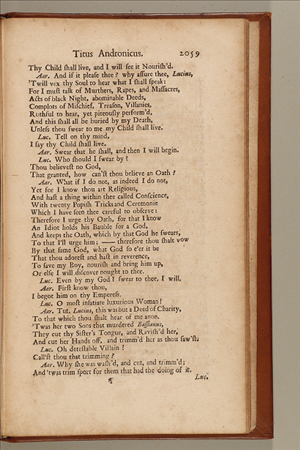 Titus Andronicus. 2059
Thy Child shall live, and I will see it Nourish'd.
Aar. And if it please thee? why assure thee, Lucius,
'Twill vex thy Soul to hear what I shall speak:
For I must talk of Murthers, Rapes, and Massacres,
Acts of black Night, abominable Deeds,
Complots of Mischief, Treason, Villanies,
Ruthful to hear, yet piteously perform'd,
And this shall all be buried by my Death,
Unless thou swear to me my Child shall live.
Luc. Tell on thy mind,
I say thy Child shall live.
Aar. Swear that he shall, and then I will begin.
Luc. Who should I swear by?
Thou believest no God,
That granted, how can'st thou believe an Oath?
Aar. What if I do not, as indeed I do not,
Yet for I know thou art Religious,
And hast a thing within thee called Conscience,
With twenty Popish Tricks and Ceremonies
Which I have seen thee careful to observe:
Therefore I urge thy Oath, for that I know
An Idiot holds his Bauble for a God,
And keeps the Oath, which by that God he swears,
To that I'll urge him; —— therefore thou shalt vow
By that same God, what God so e'er it be
That thou adorest and hast in reverence,
To save my Boy, nourish and bring him up,
Or else I will discover nought to thee.
Luc. Even by my God I swear to thee, I will.
Aar. First know thou,
I begot him on thy Empress.
Luc. O most insatiate luxurious Woman!
Aar. Tut, Lucius, this was but a Deed of Charity,
To that which thou shalt hear of me anon.
'Twas her two Sons that murdered Bassianus,
They cut thy Sister's Tongue, and Ravish'd her,
And cut her Hands off, and trimm'd her as thou saw'st.
Luc. Oh detestable Villain!
Call'st thou that trimming?
Aar. Why she was wash'd, and cut, and trimm'd;
And 'twas trim sport for them that had the doing of it.
Luc.